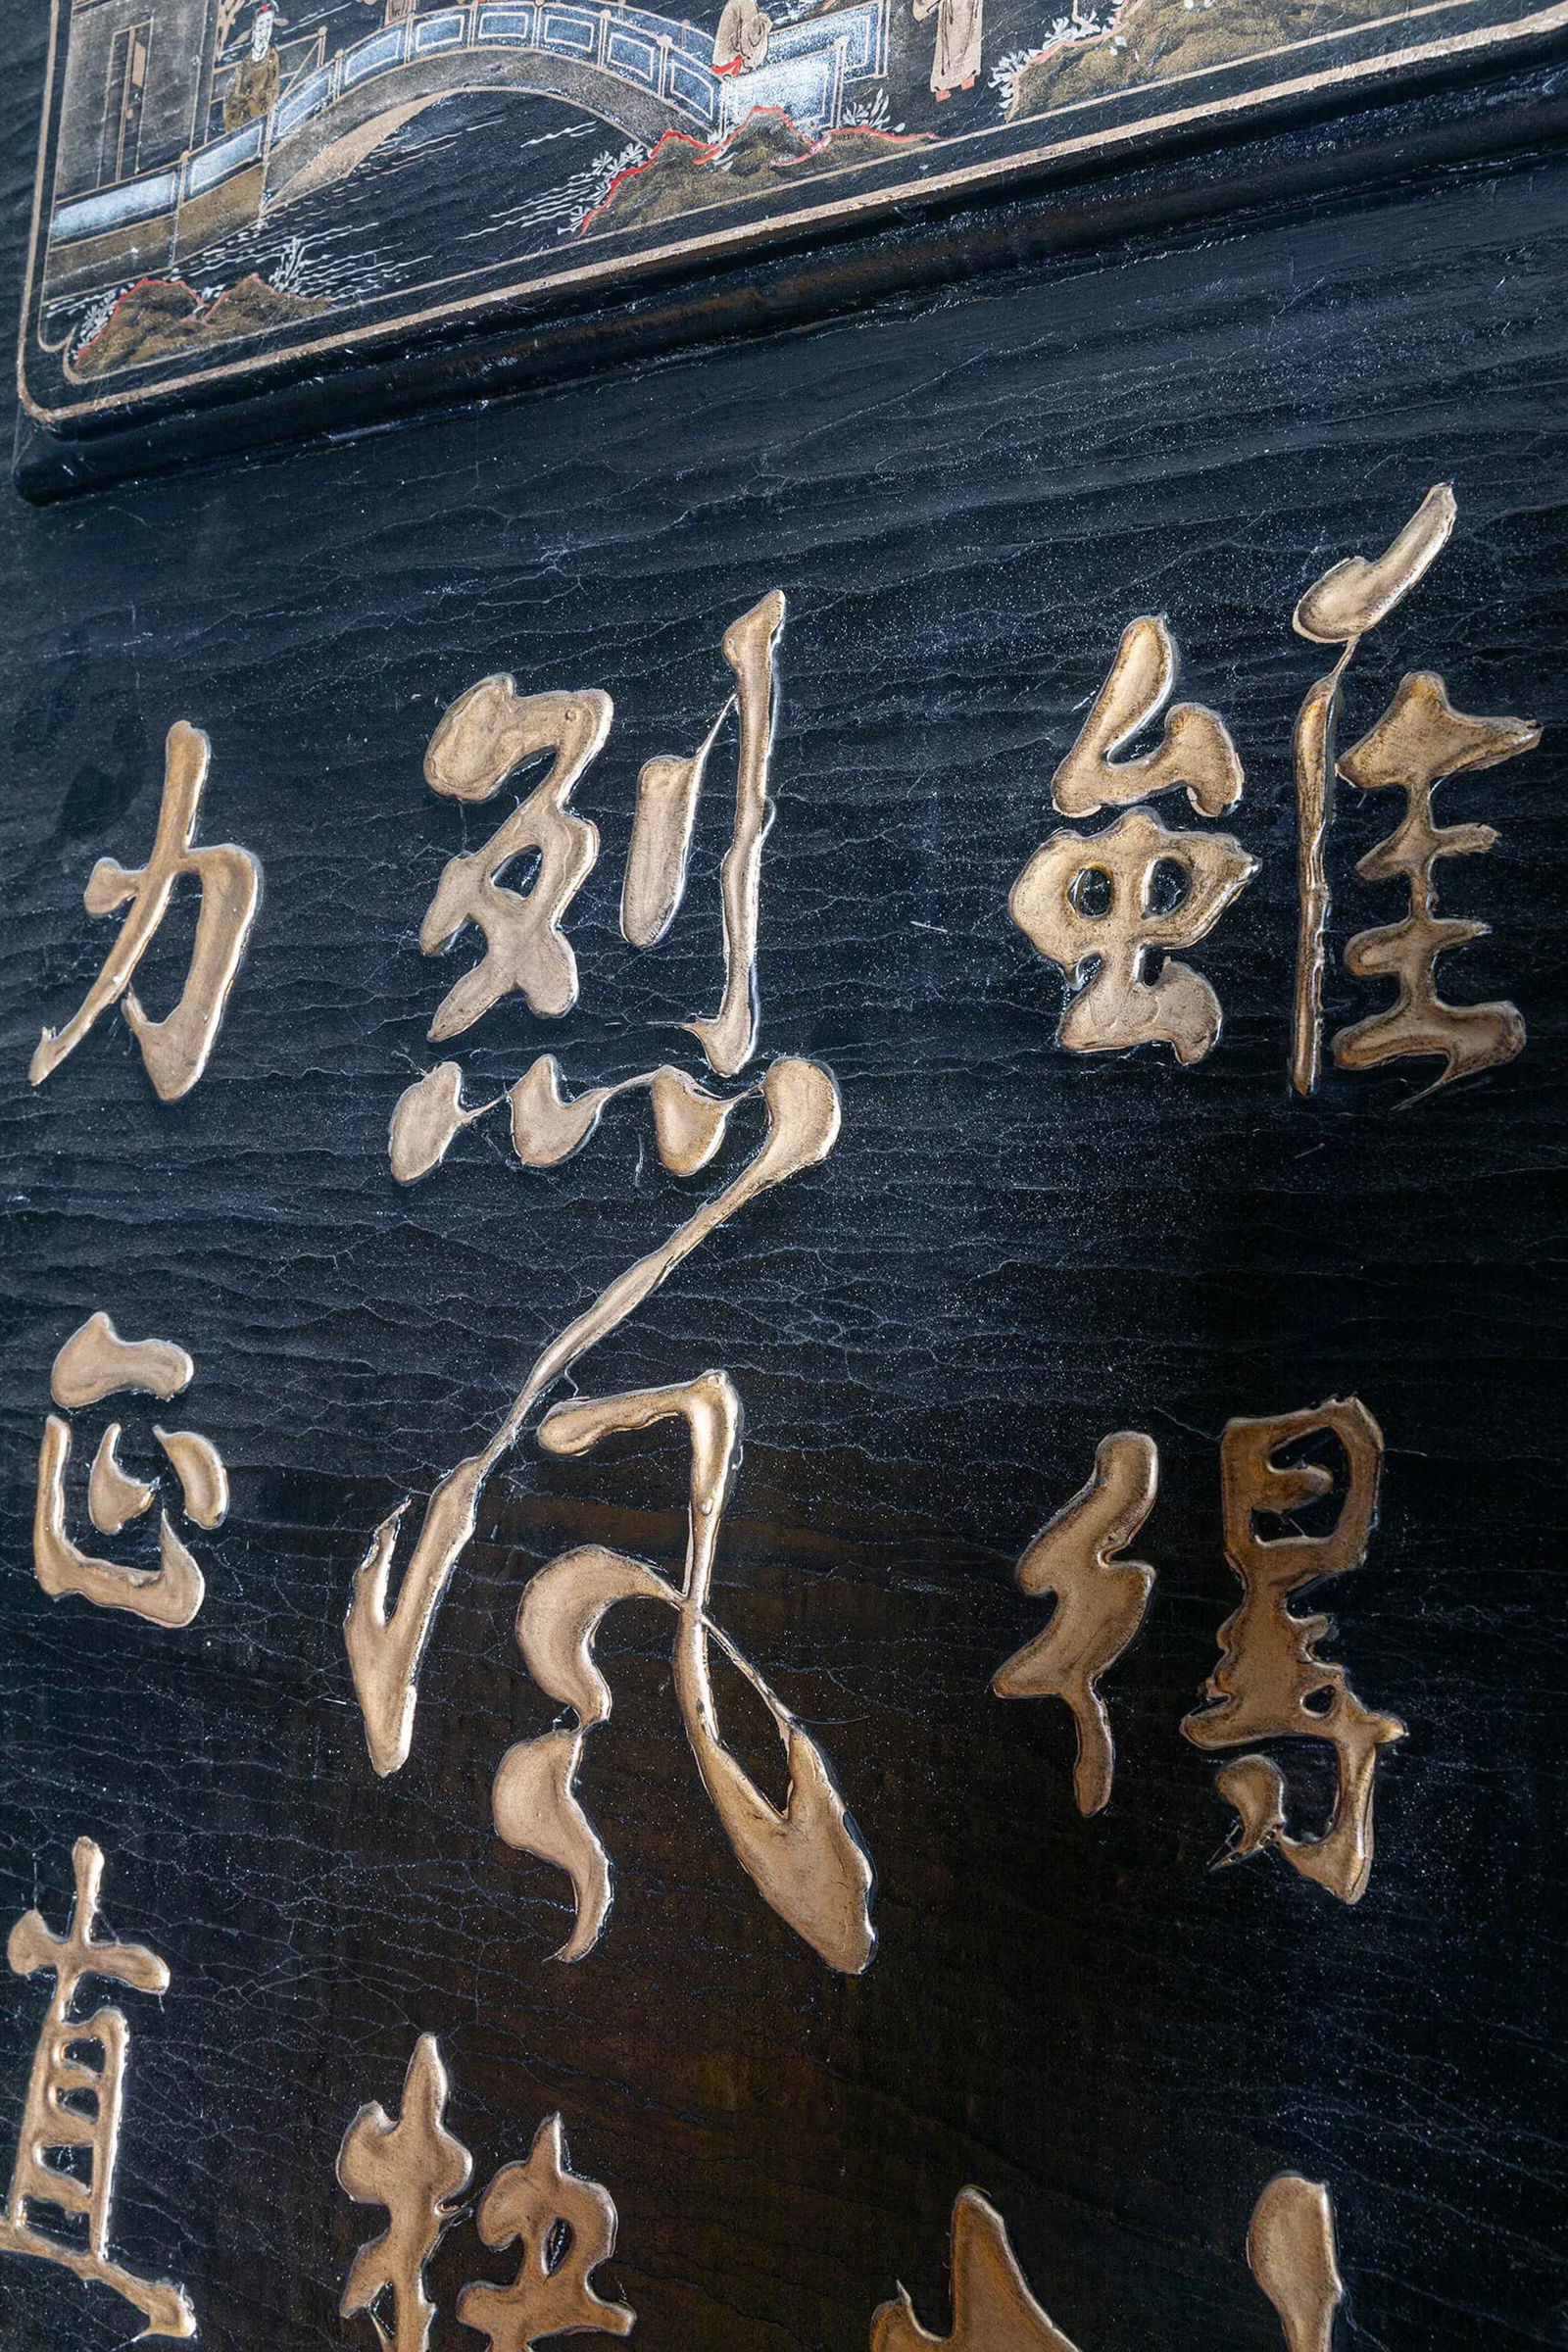 雖得
烈風扶
力正直